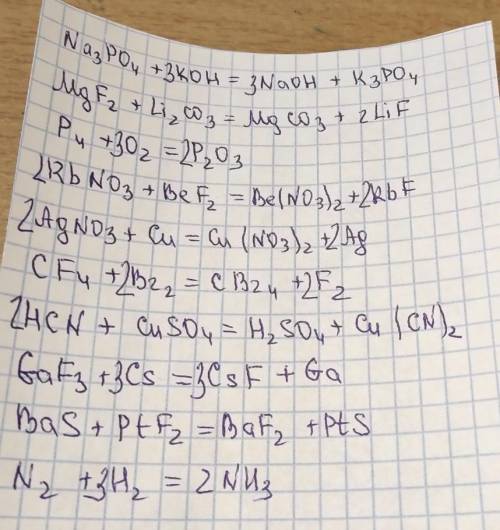 Na₃PO₄ + 3KOH = 3NaOH + K₃PO₄
MgF₂ + Li₂CO₃ = MgCO₃ + 2LiF
P₄ + 3O₂ = 2P₂O₃
2RbNO₃ + BeF₂ = Be(NO₃)₂ + 2RbF
2AgNO₃ + Cu = Cu(NO₃)₂ + 2Ag
CF₄ + 2Br₂ = CBr₄ + 2F₂
2HCN + CuSO₄ = H₂SO₄ + Cu(CN)₂
GaF₃ + 3Cs = 3CsF + Ga
BaS + PtF₂ = BaF₂ + PtS
N₂ + 3H₂ = 2NH₃